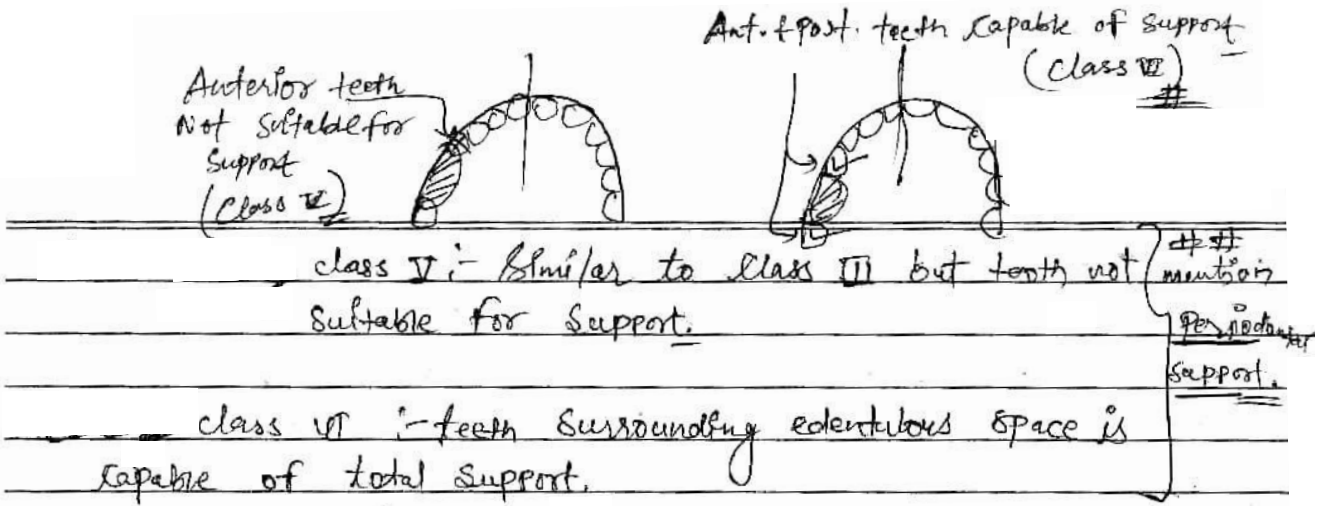 Ant. & Post. teeth capable of support
(class VI)
Anterior teeth
Not suitable for
support
(class V)
class V :- Similar to class III but tooth not
suitable for support.
class VI :- teeth surrounding edentulous space is
capable of total support.
mention
Periodontal
support.